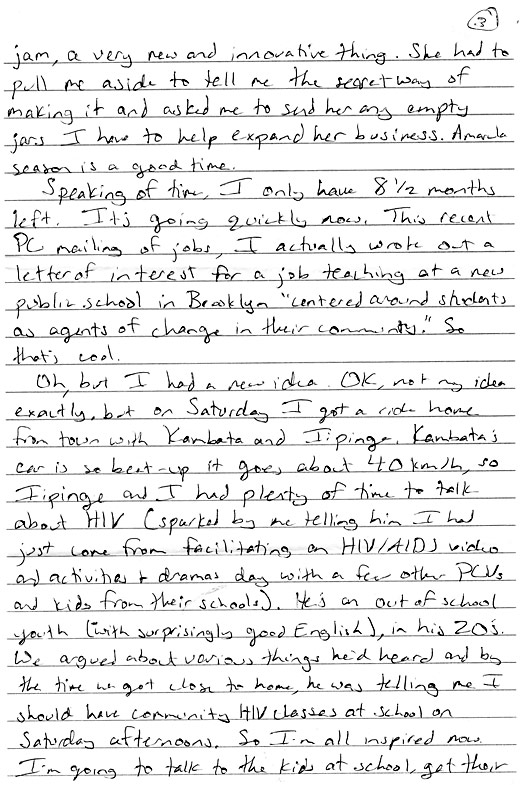 3
jam, a very new and innovative thing. She had to
pull me aside to tell me the secret way of
making it and asked me to send her any empty
jars I have to help expand her business. Amarula
season is a good time.
Speaking of time, I only have 8 1/2 months
left. It's going quickly now. This recent
PC mailing of jobs, I actually wrote out a
letter of interest for a job teaching at a new
public school in Brooklyn "centered around students
as agents of change in their community." So
that's cool.
Oh, but I had a new idea. OK, not my idea
exactly, but on Saturday I got a ride home
from town with Kambata and Iipinge. Kambata's
car is so beat-up it goes about 40 km/h, so
Iipinge and I had plenty of time to talk
about HIV (sparked by me telling him I had
just come from facilitating an HIV/AIDS video
and activities + dramas day with a few other PCVs
and kids from their schools). He's an out of school
youth (with surprisingly good English), in his 20's.
We argued about various things he'd heard and by
the time we got close to home, he was telling me I
should have community HIV classes at school on
Saturday afternoons. So I'm all inspired now.
I'm going to talk to the kids at school, get their